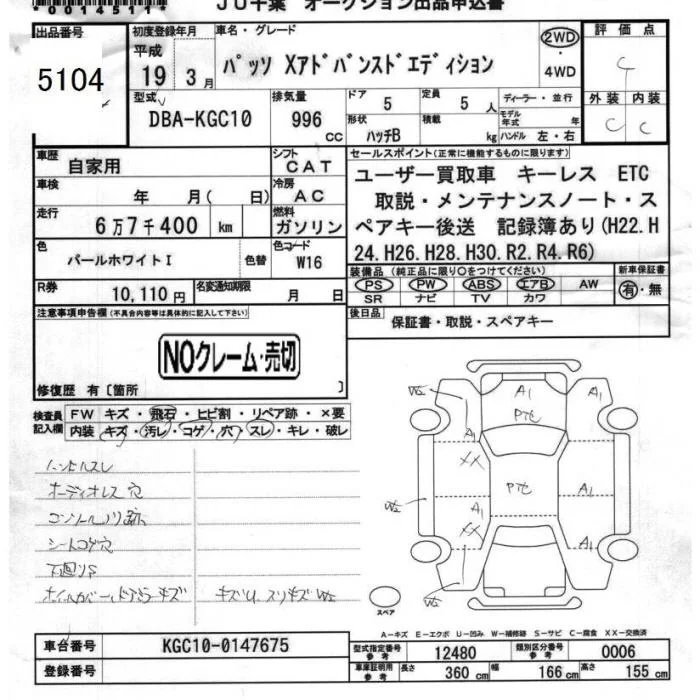 *0014511*
JU千葉 オークション出品申込書
出品番号
5104
初度登録年月
平成
19年 3月
車名・グレード
パッソ Xアドバンスドエディション
2WD
・
4WD
評価点
4
外装 内装
C C
型式
DBA-KGC10
排気量
996
cc
ドア
5
定員
5人
ディーラー・並行
モデル年式 年
形状
ハッチB
積載
kg
ハンドル 左・右
車歴
自家用
シフト
CAT
車検
年 月( 日)
冷房
AC
走行
6万7千400 km
燃料
ガソリン
色
パールホワイトI
色替
色コード
W16
R券
10,110円
名変通知期限
月 日
セールスポイント(正常に機能するものに限ります)
ユーザー買取車 キーレス ETC
取説・メンテナンスノート・ス
ペアキー後送 記録簿あり(H22.H
24.H26.H28.H30.R2.R4.R6)
装備品(純正品に限り○をつけてください)
PS PW ABS エアB AW
SR ナビ TV カワ
新車保証書
有・無
後日品
保証書・取説・スペアキー
注意事項申告欄(不具合内容等は具体的に記入して下さい)
NOクレーム・売切
修復歴 有〔箇所 〕
検査員
記入欄
FW キズ・飛石・ヒビ割・リペア跡・×要
内装 キズ・汚レ・コゲ・穴・スレ・キレ・破レ
ハンドルスレ
オーディオレス 穴
コンソールノリ跡
シートコゲ穴
下廻りS
キズU スリキズ W2
W2
A1
A1
PTC
A1
XX
PTC
A1
W2
W2
A1
XX
A1
W2
スペア
A-キズ E-エクボ U-凹み W-補修跡 S-サビ C-腐食 XX-交換済
車台番号
KGC10-0147675
登録番号
型式指定番号
参考
12480
類別区分番号
参考
0006
車庫証明用
参考
長さ
360 cm
幅
166 cm
高さ
155 cm